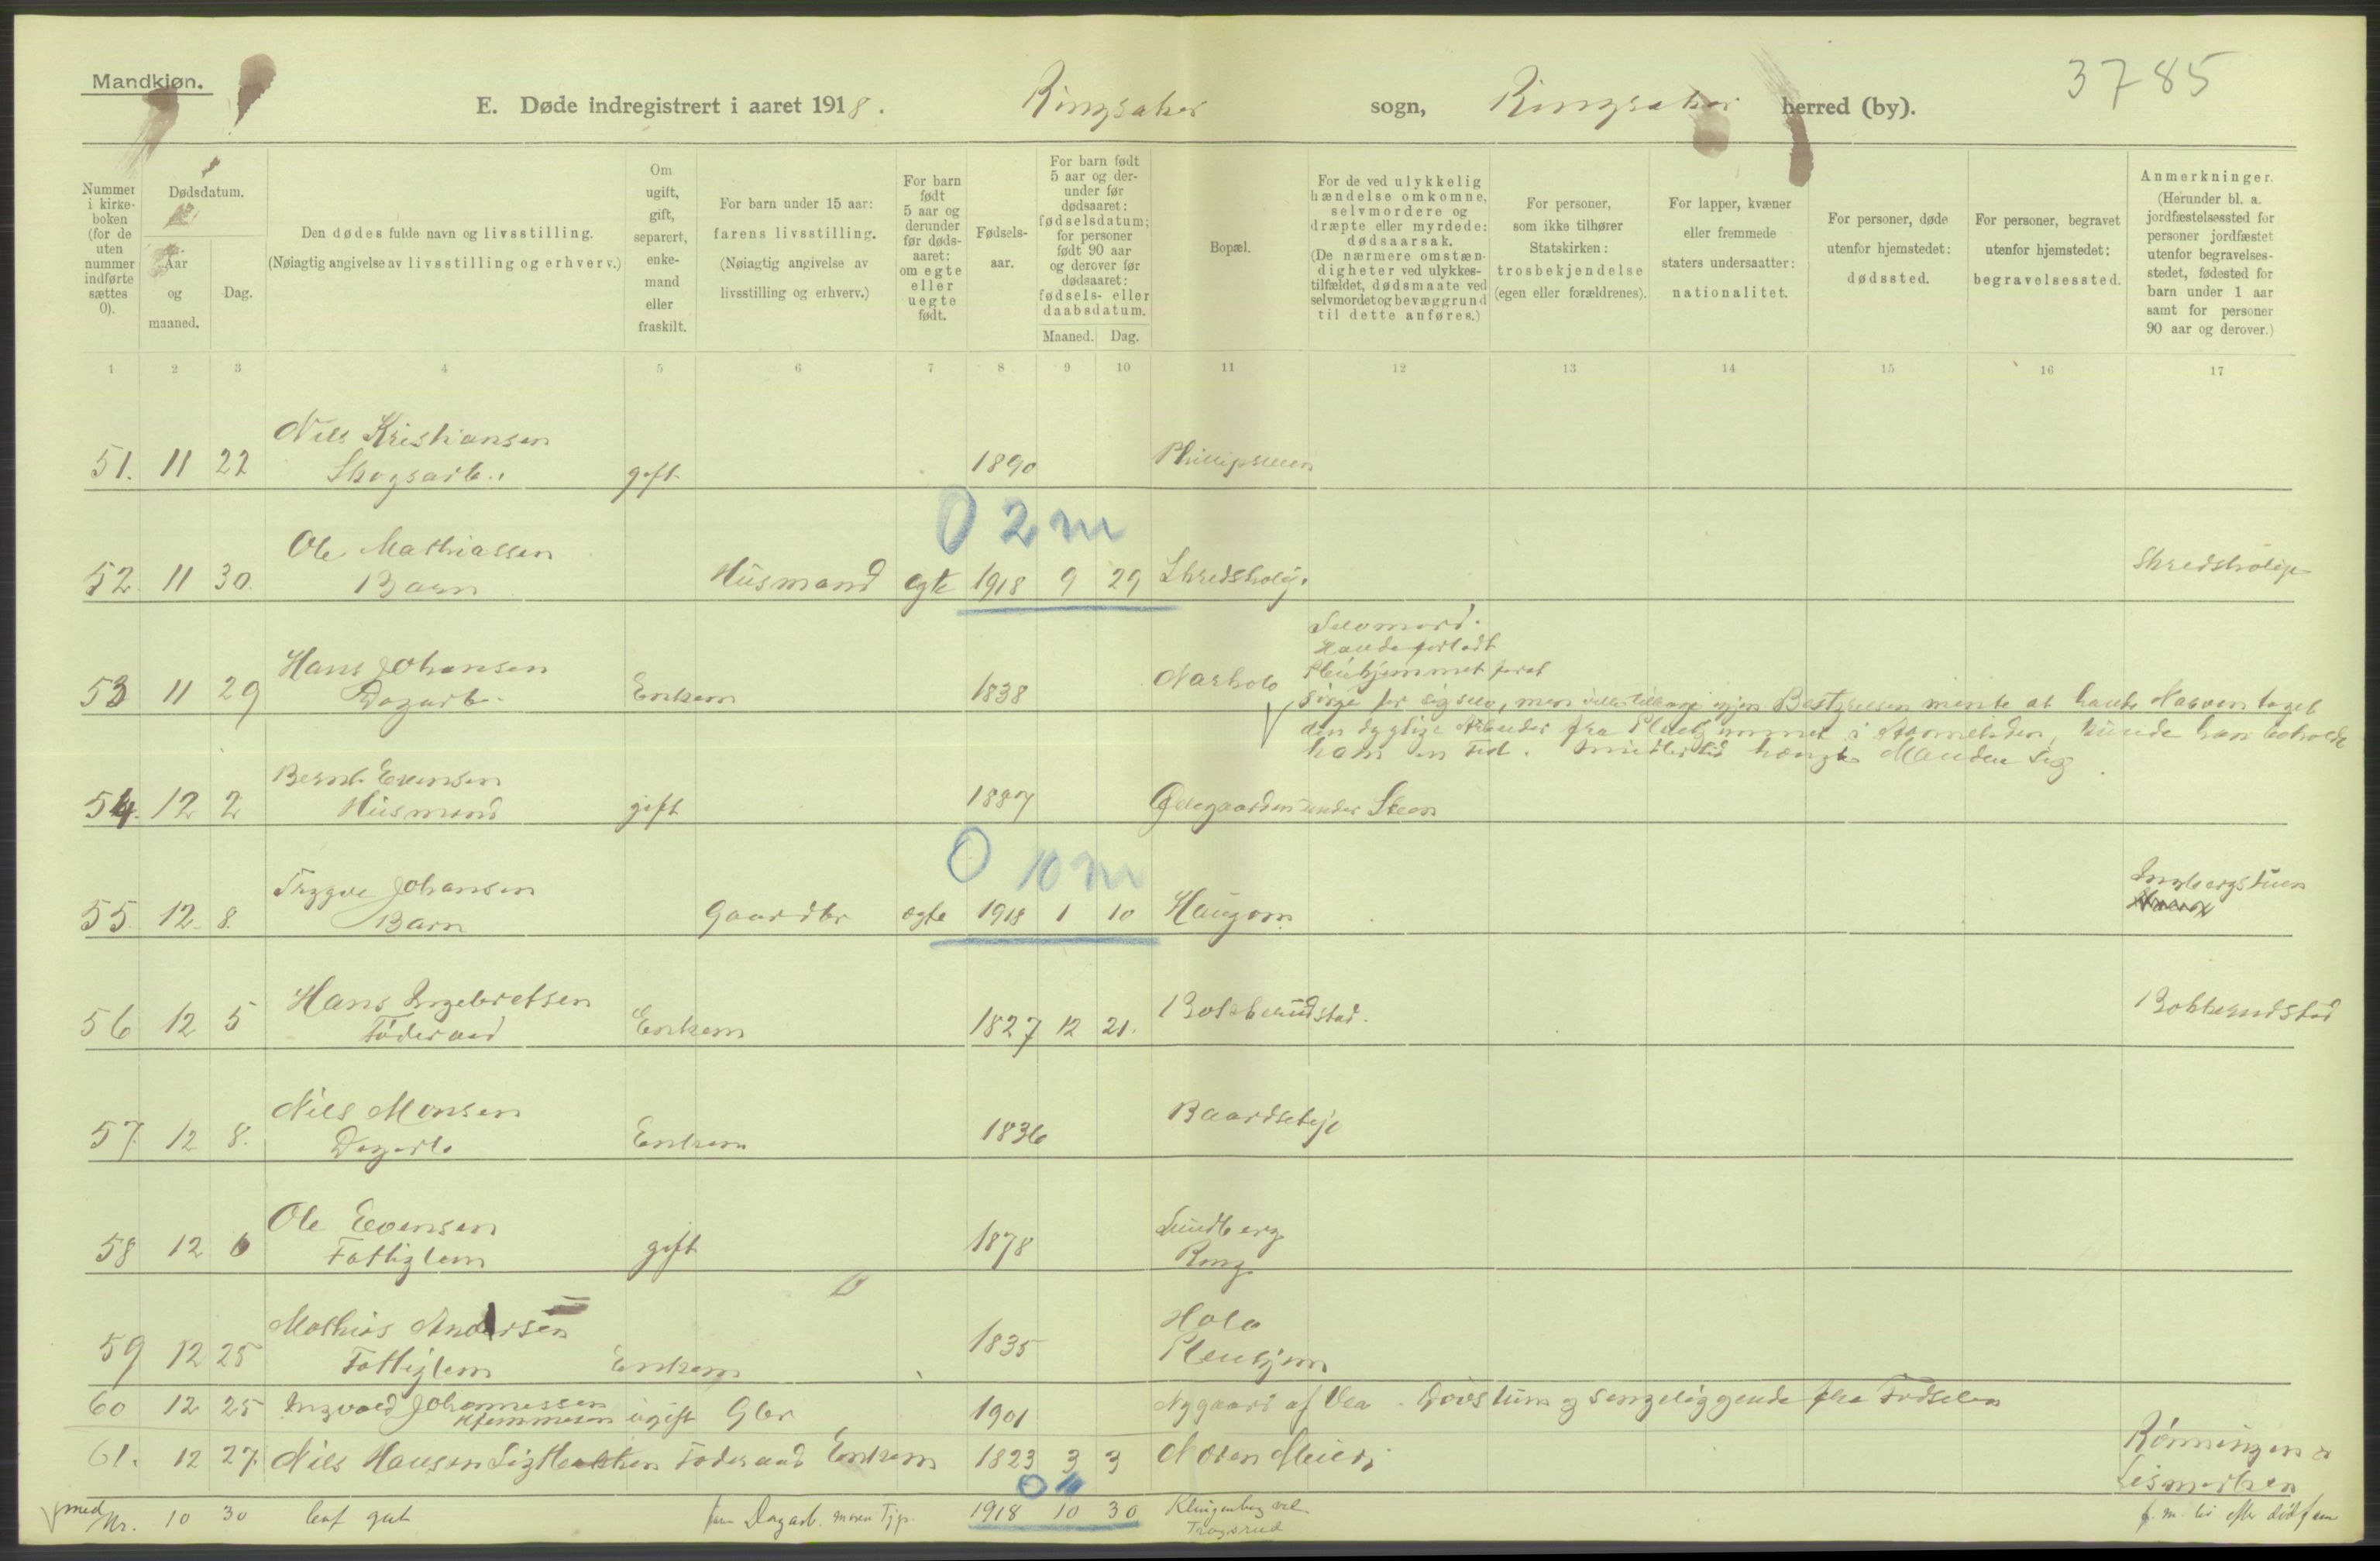 Mandkjøn.
3785
E. Døde indregistrert i aaret 1918. Ringsaker sogn, Ringsaker herred (by).
Nummer i kirke-boken (for de uten nummer indførte sættes 0).
Dødsdatum.
Aar og maaned.
Dag.
Den dødes fulde navn og livsstilling.
(Nøiagtig angivelse av livsstilling og erhverv.)
Om ugift, gift, separert, enke-mand eller fraskilt.
For barn under 15 aar:
farens livsstilling.
(Nøiagtig angivelse av livsstilling og erhverv.)
For barn født 5 aar og derunder før døds-aaret: om egte eller uegte født.
Fødsels-aar.
For barn født 5 aar og der-under før dødsaaret: fødselsdatum; for personer født 90 aar og derover før dødsaaret: fødsels- eller daabsdatum.
Maaned. Dag.
Bopæl.
For de ved ulykkelig hændelse omkomne, selvmordere og dræpte eller myrdede: dødsaarsak.
(De nærmere omstæn-digheter ved ulykkes-tilfældet, dødsmaate ved selvmordet og bevæggrund til dette anføres.)
For personer, som ikke tilhører Statskirken: trosbekjendelse (egen eller forældrenes).
For lapper, kvæner eller fremmede staters undersaatter: nationalitet.
For personer, døde utenfor hjemstedet: dødssted.
For personer, begravet utenfor hjemstedet: begravelsessted.
Anmerkninger.
(Herunder bl. a. jordfæstelsessted for personer jordfæstet utenfor begravelses-stedet, fødested for barn under 1 aar samt for personer 90 aar og derover.)
1 2 3 4 5 6 7 8 9 10 11 12 13 14 15 16 17
Nils Kristiansen
51. 11 22 Skogsarb. gift 1890
0 2 m
Ole Mathiassen
52 11 30. Barn Husmand egte 1918 9 29
Selvmord.
Havde forladt
Hans Johansen Pleiehjemmet forat
53 11 29 Dagarb. Enkem 1838
sørge for sig selv, men vilde igjen. Bestyrelsen mente at havde
den dygtige Arbeider fra, kunde han beholde
ham en Tid. Imidlertid hængte Manden sig.
Bernt Evensen
54. 12 2 Husmand gift 1887 Ødegaarden under Steen
0 10 m
Trygve Johansen
55. 12. 8. Barn Gaardbr egte 1918 1 10 Haugom
Hans Ingebretsen
56 12 5 Føderaad Enkem 1827 12 21. Bolkerudstad. Bolkerudstad
Nils Monsen
57. 12 8. Dagarb. Enkem 1836 Baardseteje
Ole Evensen Lundberg
58 12 6 Fattiglem gift 1878 Ring
Mathias Andersen
59 12 25 Fattiglem Enkem 1835 Pleiehjem
60 12 25 Ingvald Johannessen ugift Gbr 1901 Nygaard af Vea. Døvstum og sengeliggende fra Fødselen
Hjemmesøn
61. 12 27. Nils Hansen Føderaad Enkem 1823 3 3 Rønningen
0
med Nr. 10 30 løf gut far Dagarb. moren Tjp. 1918 10 30 Klingenberg